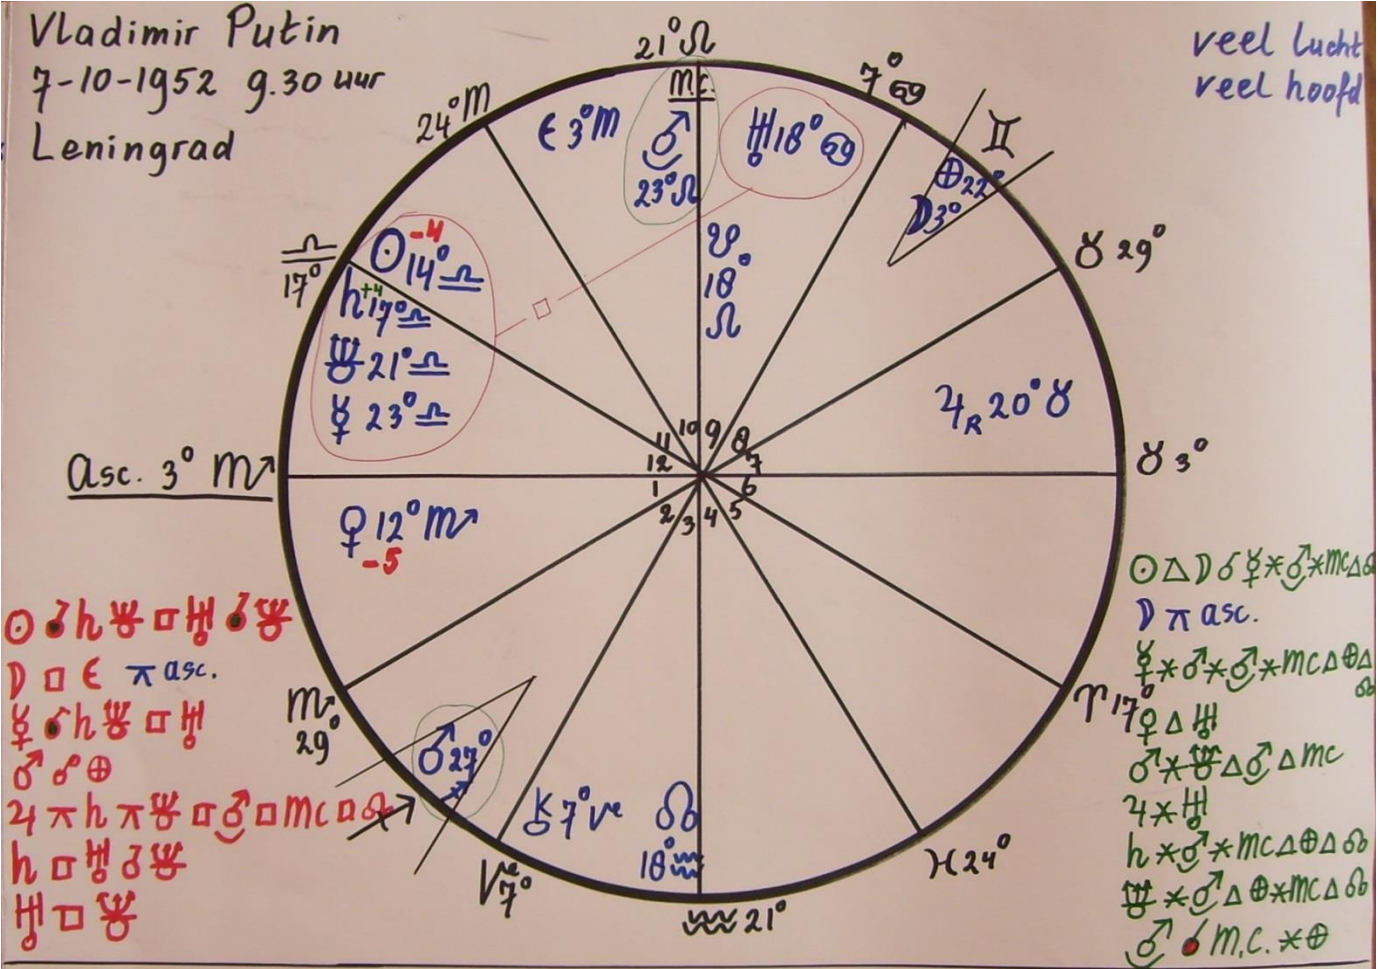 Vladimir Putin
7-10-1952 9.30 uur
Leningrad
veel lucht
veel hoofd
21° ♌
M.C.
7° ♋
♊
⊕ 22°
☽ 3°
♉ 29°
♉ 3°
♈ 17°
♓ 24°
♒ 21°
♑ 7°
♏ 29°
asc. 3° ♏
♎ 17°
24° ♍
⚸ 3° ♍
♂ 23° ♌
♅ 18° ♋
☋ 18° ♌
☉ -4 14° ♎
♄ +4 17° ♎
♆ 21° ♎
☿ 23° ♎
□
♃ R 20° ♉
♀ 12° ♏
-5
♂ 27°
♐
⚷ 7° ♑
☊ 18° ♒
1 2 3 4 5 6 7 8 9 10 11 12
☉ ☌ ♄ ♆ □ ♅ ☌ ♆
☽ □ ⚸ ⚻ asc.
☿ ☌ ♄ ♆ □ ♅
♂ ☍ ⊕
♃ ⚻ ♄ ⚻ ♆ □ ♂ □ MC □ ☊
♄ □ ♅ ☌ ♆
♅ □ ♆
☉ △ ☽ ☌ ☿ ⚹ ♂ ⚹ MC △ ☊
☽ ⚻ asc.
☿ ⚹ ♂ ⚹ ♂ ⚹ MC △ ⊕ △ ☊
♀ △ ♅
♂ ⚹ ♆ △ ♂ △ MC
♃ ⚹ ♅
♄ ⚹ ♂ ⚹ MC △ ⊕ △ ☊
♆ ⚹ ♂ △ ⊕ ⚹ MC △ ☊
♂ ☌ M.C. ⚹ ⊕